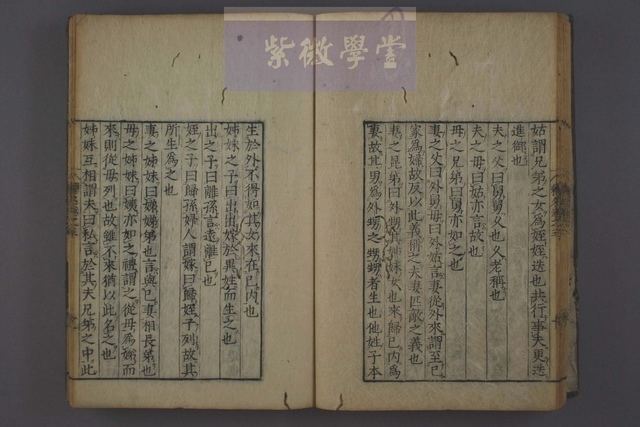 紫微學堂
姑謂兄弟之女為姪姪迭也共行事夫更迭
進御也
夫之父曰舅舅久也久老稱也
夫之母曰姑亦言故也
母之兄弟曰舅亦如之也
妻之父曰外舅母曰外姑言妻從外來謂至己
家為婦故反以此義稱之夫妻匹敵之義也
妻之昆弟曰外甥其姊妹女也來歸己內為
妻故其男為外甥之甥甥者生也他姓子本
生於外不得如其女來在己內也
姊妹之子曰出出嫁於異姓而生之也
出之子曰離孫言遠離己也
姪之子曰歸孫婦人謂嫁曰歸姪子列故其
所生為之也
妻之姊妹曰娣娣弟也言與己妻相長弟也
母之姊妹曰姨亦如之禮謂之從母為娣而
來則從母列也故雖不來猶以此名之也
姊妹互相謂夫曰私言於其夫兄弟之中此